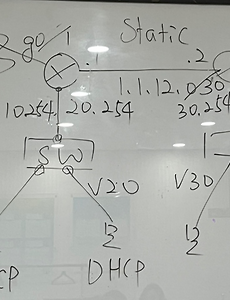 Static
g0
1
.1
.2
1.1.12.0 30
10.254
20.254
30.254
SW
V20
V30
DHCP
CP